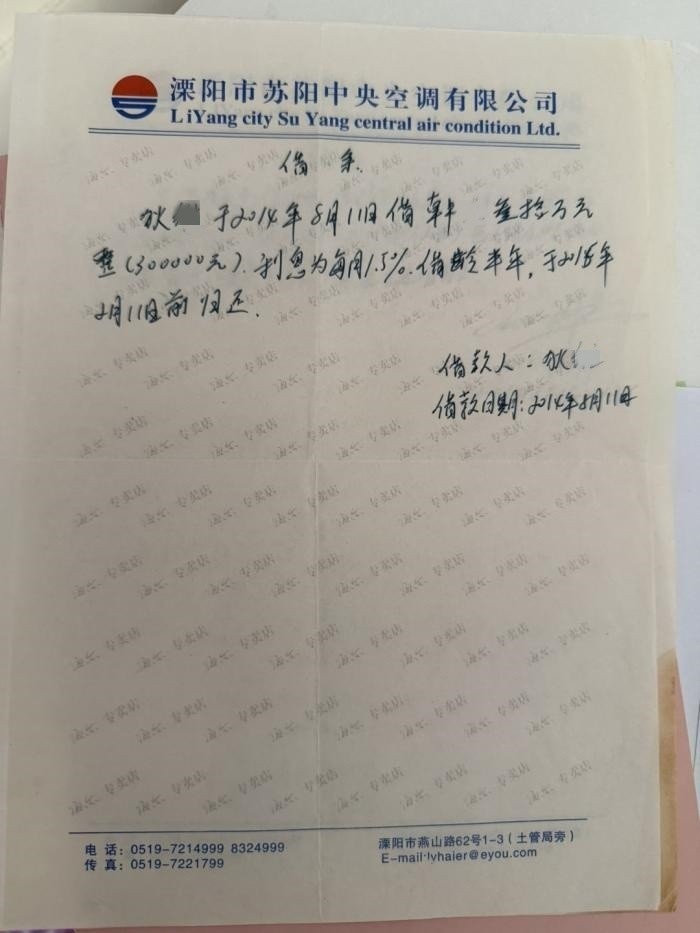 溧阳市苏阳中央空调有限公司
LiYang city Su Yang central air condition Ltd.
借条.
狄 于2014年8月11日借韩 叁拾万元
整(300000元).利息为每月1.5%.借龄半年,于2015年
2月11日前归还.
借款人:狄
借款日期:2014年8月11日
电 话: 0519-7214999 8324999
传 真: 0519-7221799
溧阳市燕山路62号1-3(土管局旁)
E-mail:lyhaier@eyou.com